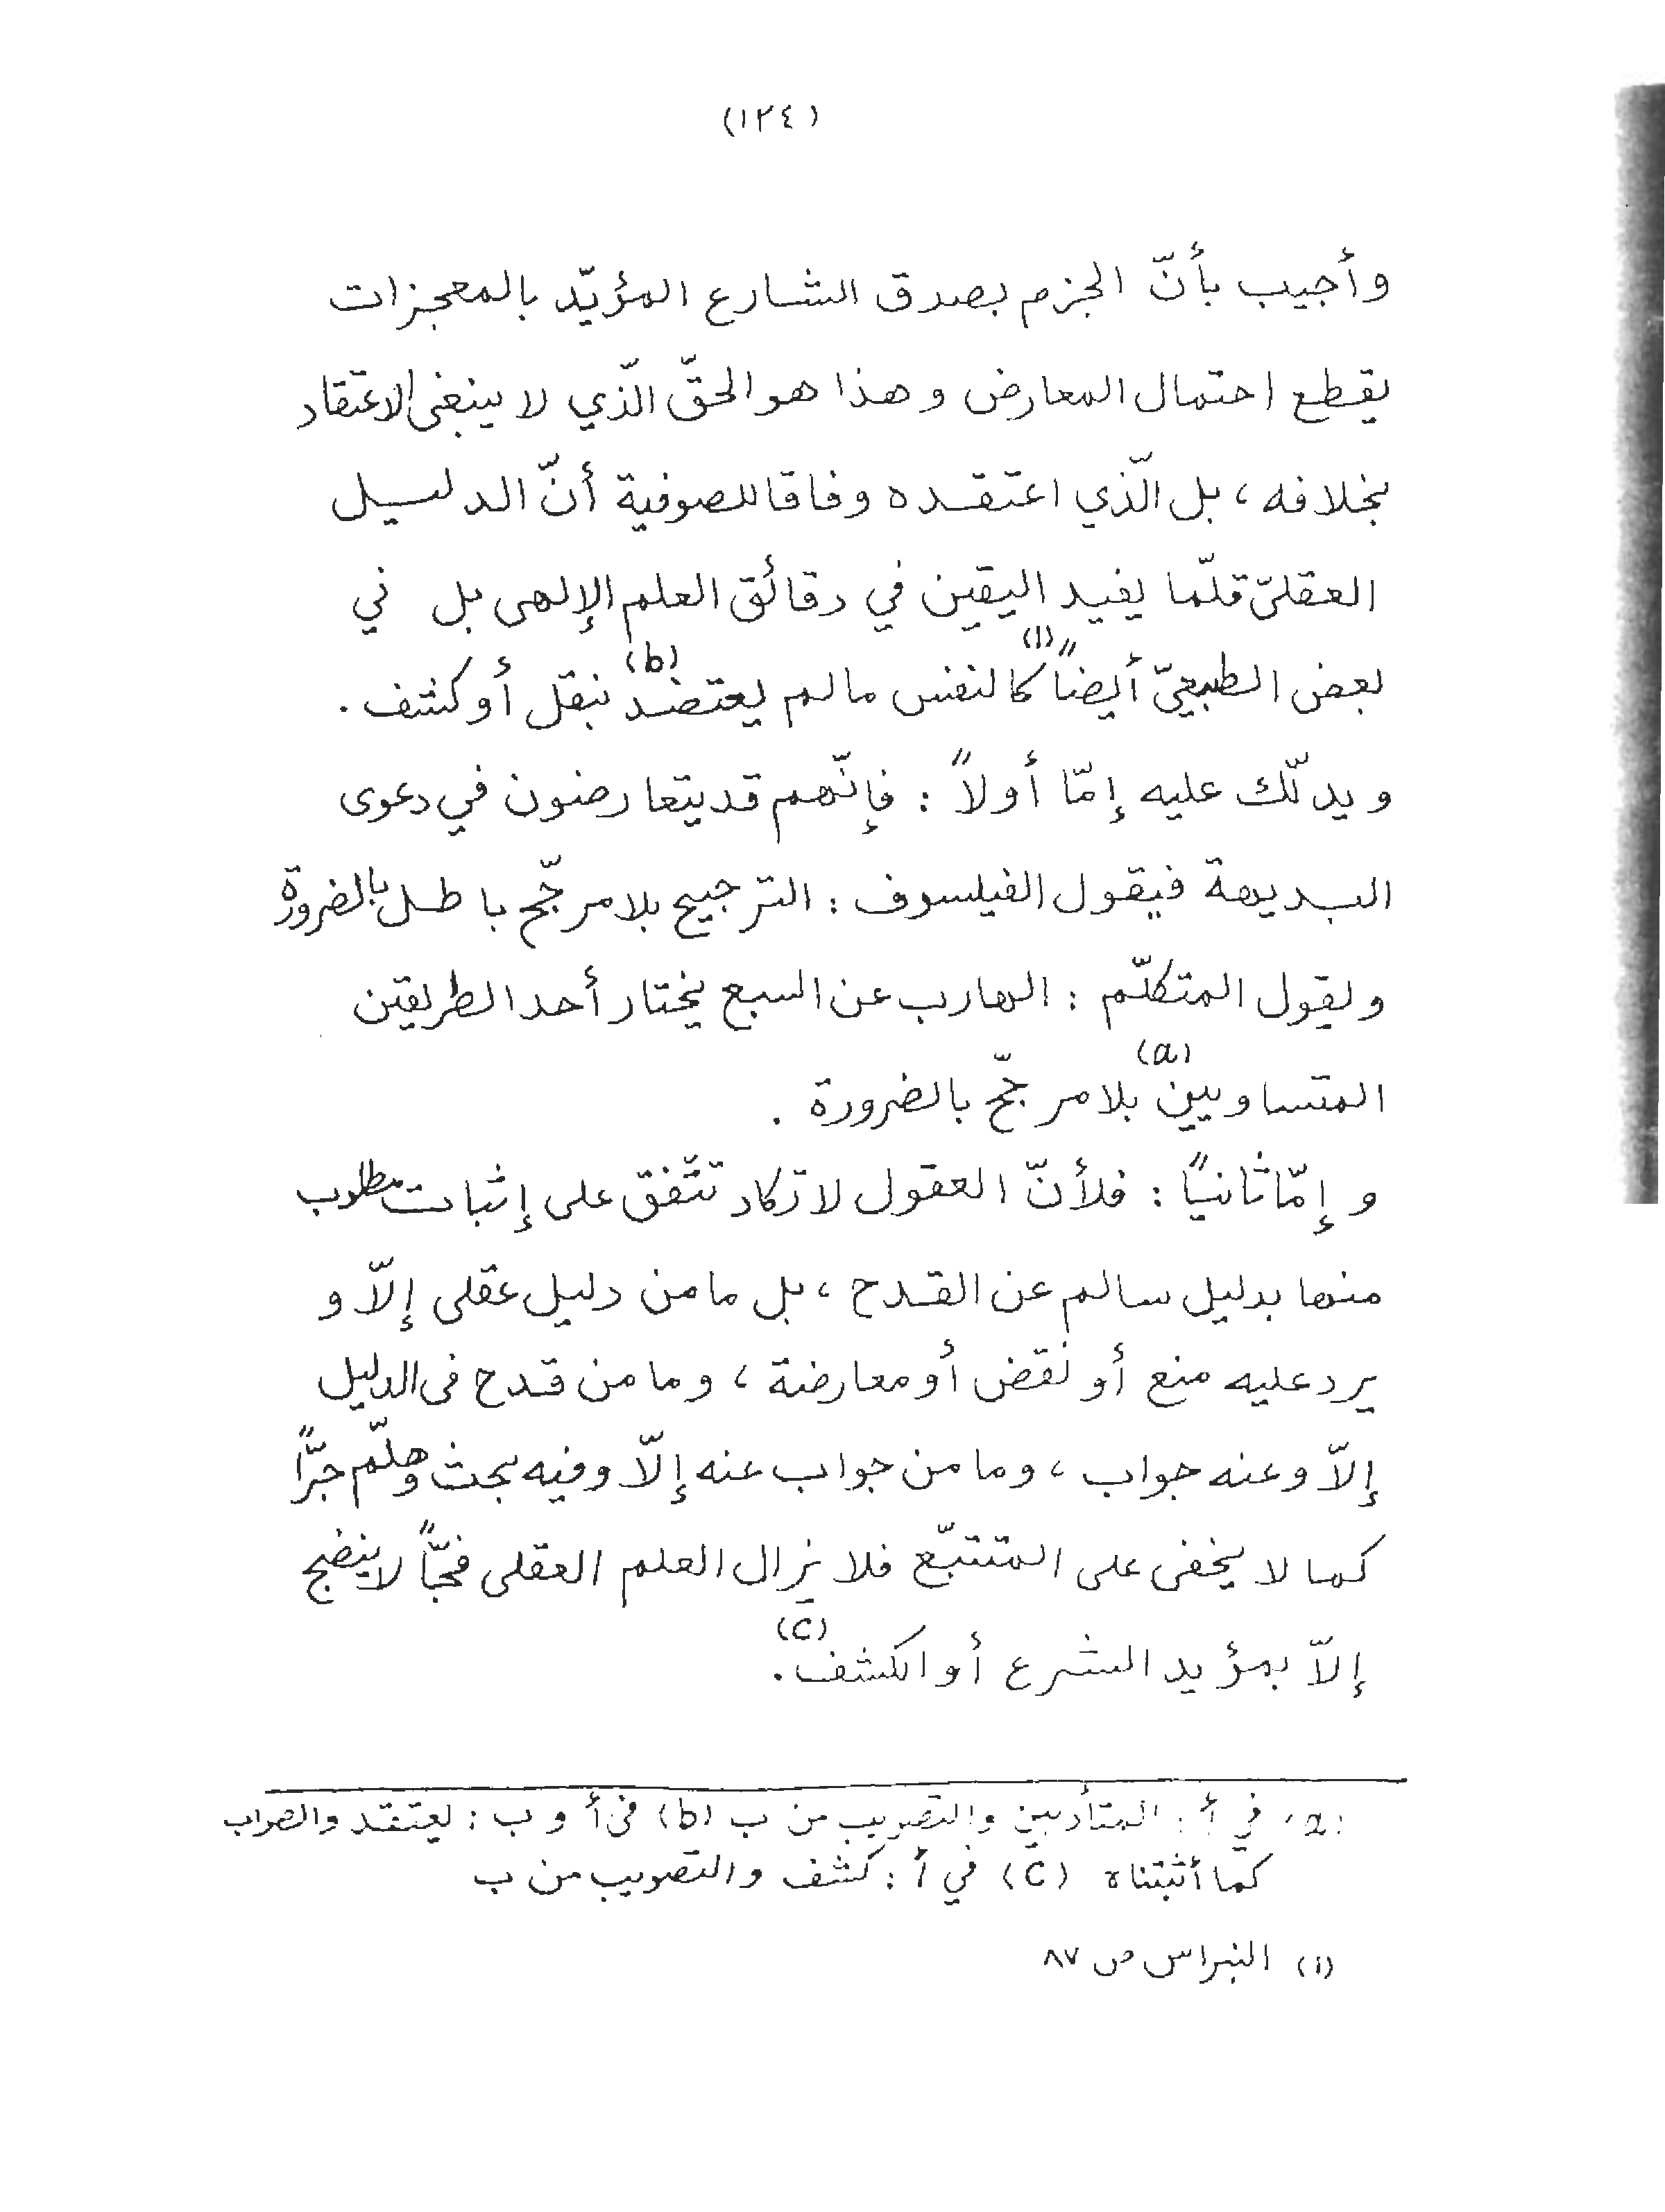 (١٢٤)
وأجيب بأنّ الجزم بصدق الشارع المؤيّد بالمعجزات
يقطع احتمال المعارض وهذا هو الحقّ الّذي لا ينبغى الاعتقاد
بخلافه ، بل الّذي اعتقده وفاقا للصوفية أنّ الدليل
العقليّ قلّما يفيد اليقين في دقائق العلم الإلهى بل في
بعض الطبيعيّ أيضاً (١) كالنفس مالم يعتضد (b) بنقل أو كشف .
و يدلّك عليه إمّا أولاً : فإنّهم قد يتعارضون في دعوى
البديهة فيقول الفيلسوف : الترجيح بلا مرجّح باطل بالضرورة
ويقول المتكلّم : الهارب عن السبع يختار أحد الطريقين
المتساويين (a) بلا مرجّح بالضرورة .
و إمّا ثانياً : فلأنّ العقول لا تكاد تتّفق على إثبات مطلوب
منها بدليل سالم عن القدح ، بل ما من دليل عقلى إلاّ و
يرد عليه منع أو نقض أو معارضة ، وما من قدح فى الدليل
إلاّ وعنه جواب ، وما من جواب عنه إلاّ وفيه بحث وهلّم جرّاً
كما لا يخفى على المتتبّع فلا يزال العلم العقلى فجّاً لا ينضج
إلاّ بمؤيد الشرع أو الكشف (c) .
(a) في أ : المتأدبين والتصويب من ب (b) فى أ و ب : يعتقد والصواب
كما أثبتناه (c) في أ : كشف والتصويب من ب
(١) النبراس ص ٨٧